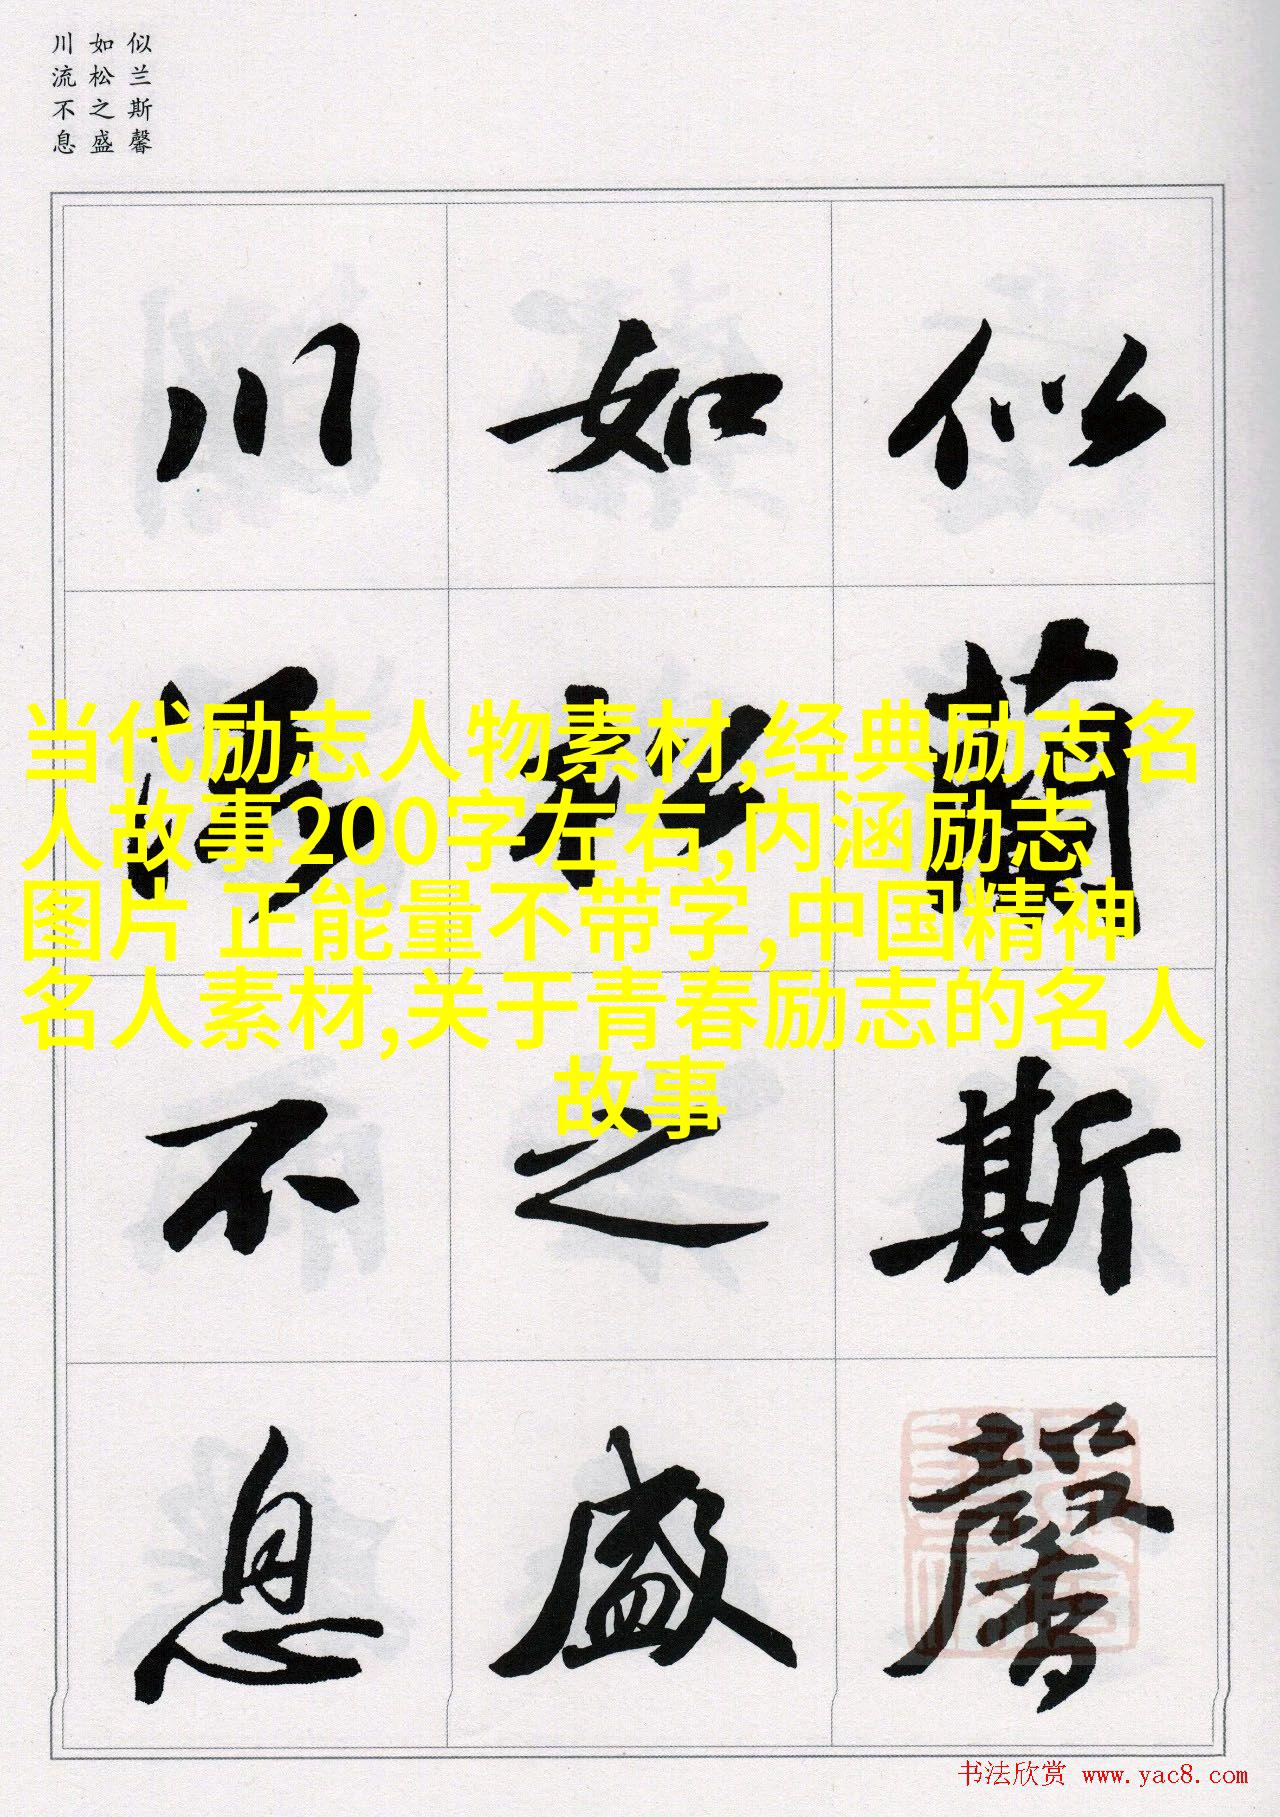 似兰斯馨
如松之盛
川流不息
似蘭斯馨
如松之盛
川流不息
当代励志人物素材,经典励志名
人故事200字左右,内涵励志
图片 正能量不带字,中国精神
名人素材,关于青春励志的名人
故事
书法欣赏 www.yac8.com